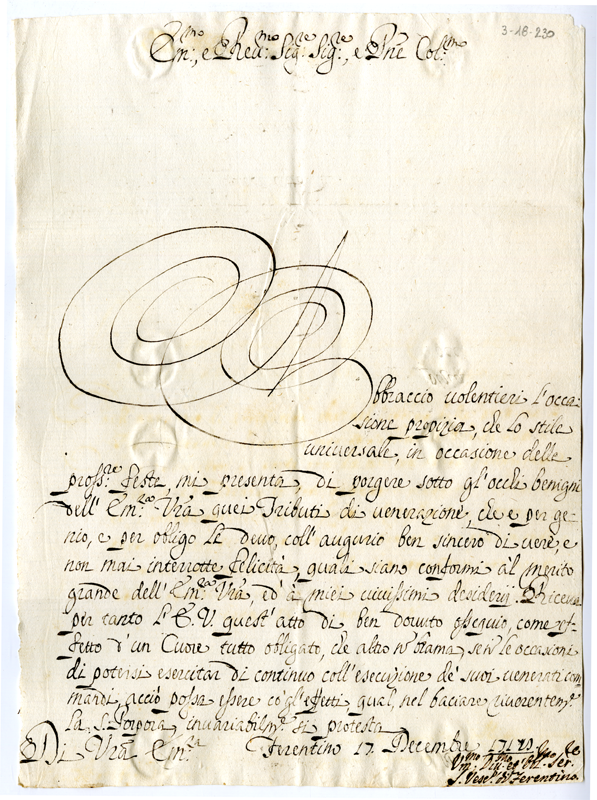 3-18-230
Em:mo, e Reu:mo Sig:re Sig:re, e Pne Col:mo
Abbraccio uolentieri l'occa-
sione propizia, che lo stile
uniuersale, in occasione delle
pross:e feste, mi presenta di porgere sotto gl'occhi benigni
dell' Em:za Vra quei Tributi di uenerazione, che e per ge-
nio, e per obligo Le deuo, coll' augurio ben sincero di uere, e
non mai interrotte felicità, quali siano conformi al merito
grande dell' Em:za Vra, ed' à miei uiuissimi desiderij. Riceua
per tanto l' E. V. quest' atto di ben douuto ossequio, come ef-
fetto d'un Cuore tutto obligato, che altro ñ brama, se ñ le occasioni
di potersi esercitar di continuo coll' esecuzione de' suoi uenerati com
mandi, acciò possa essere co' gl'effetti, qual, nel baciare riuerentem:e
La S. Porpora, inuariabilm:e si protesta
Di Vra Em:a Ferentino 17 Decembre
Vm:mo Diu:mo ed Obl:mo Ser.
Vesc.o di Ferentino